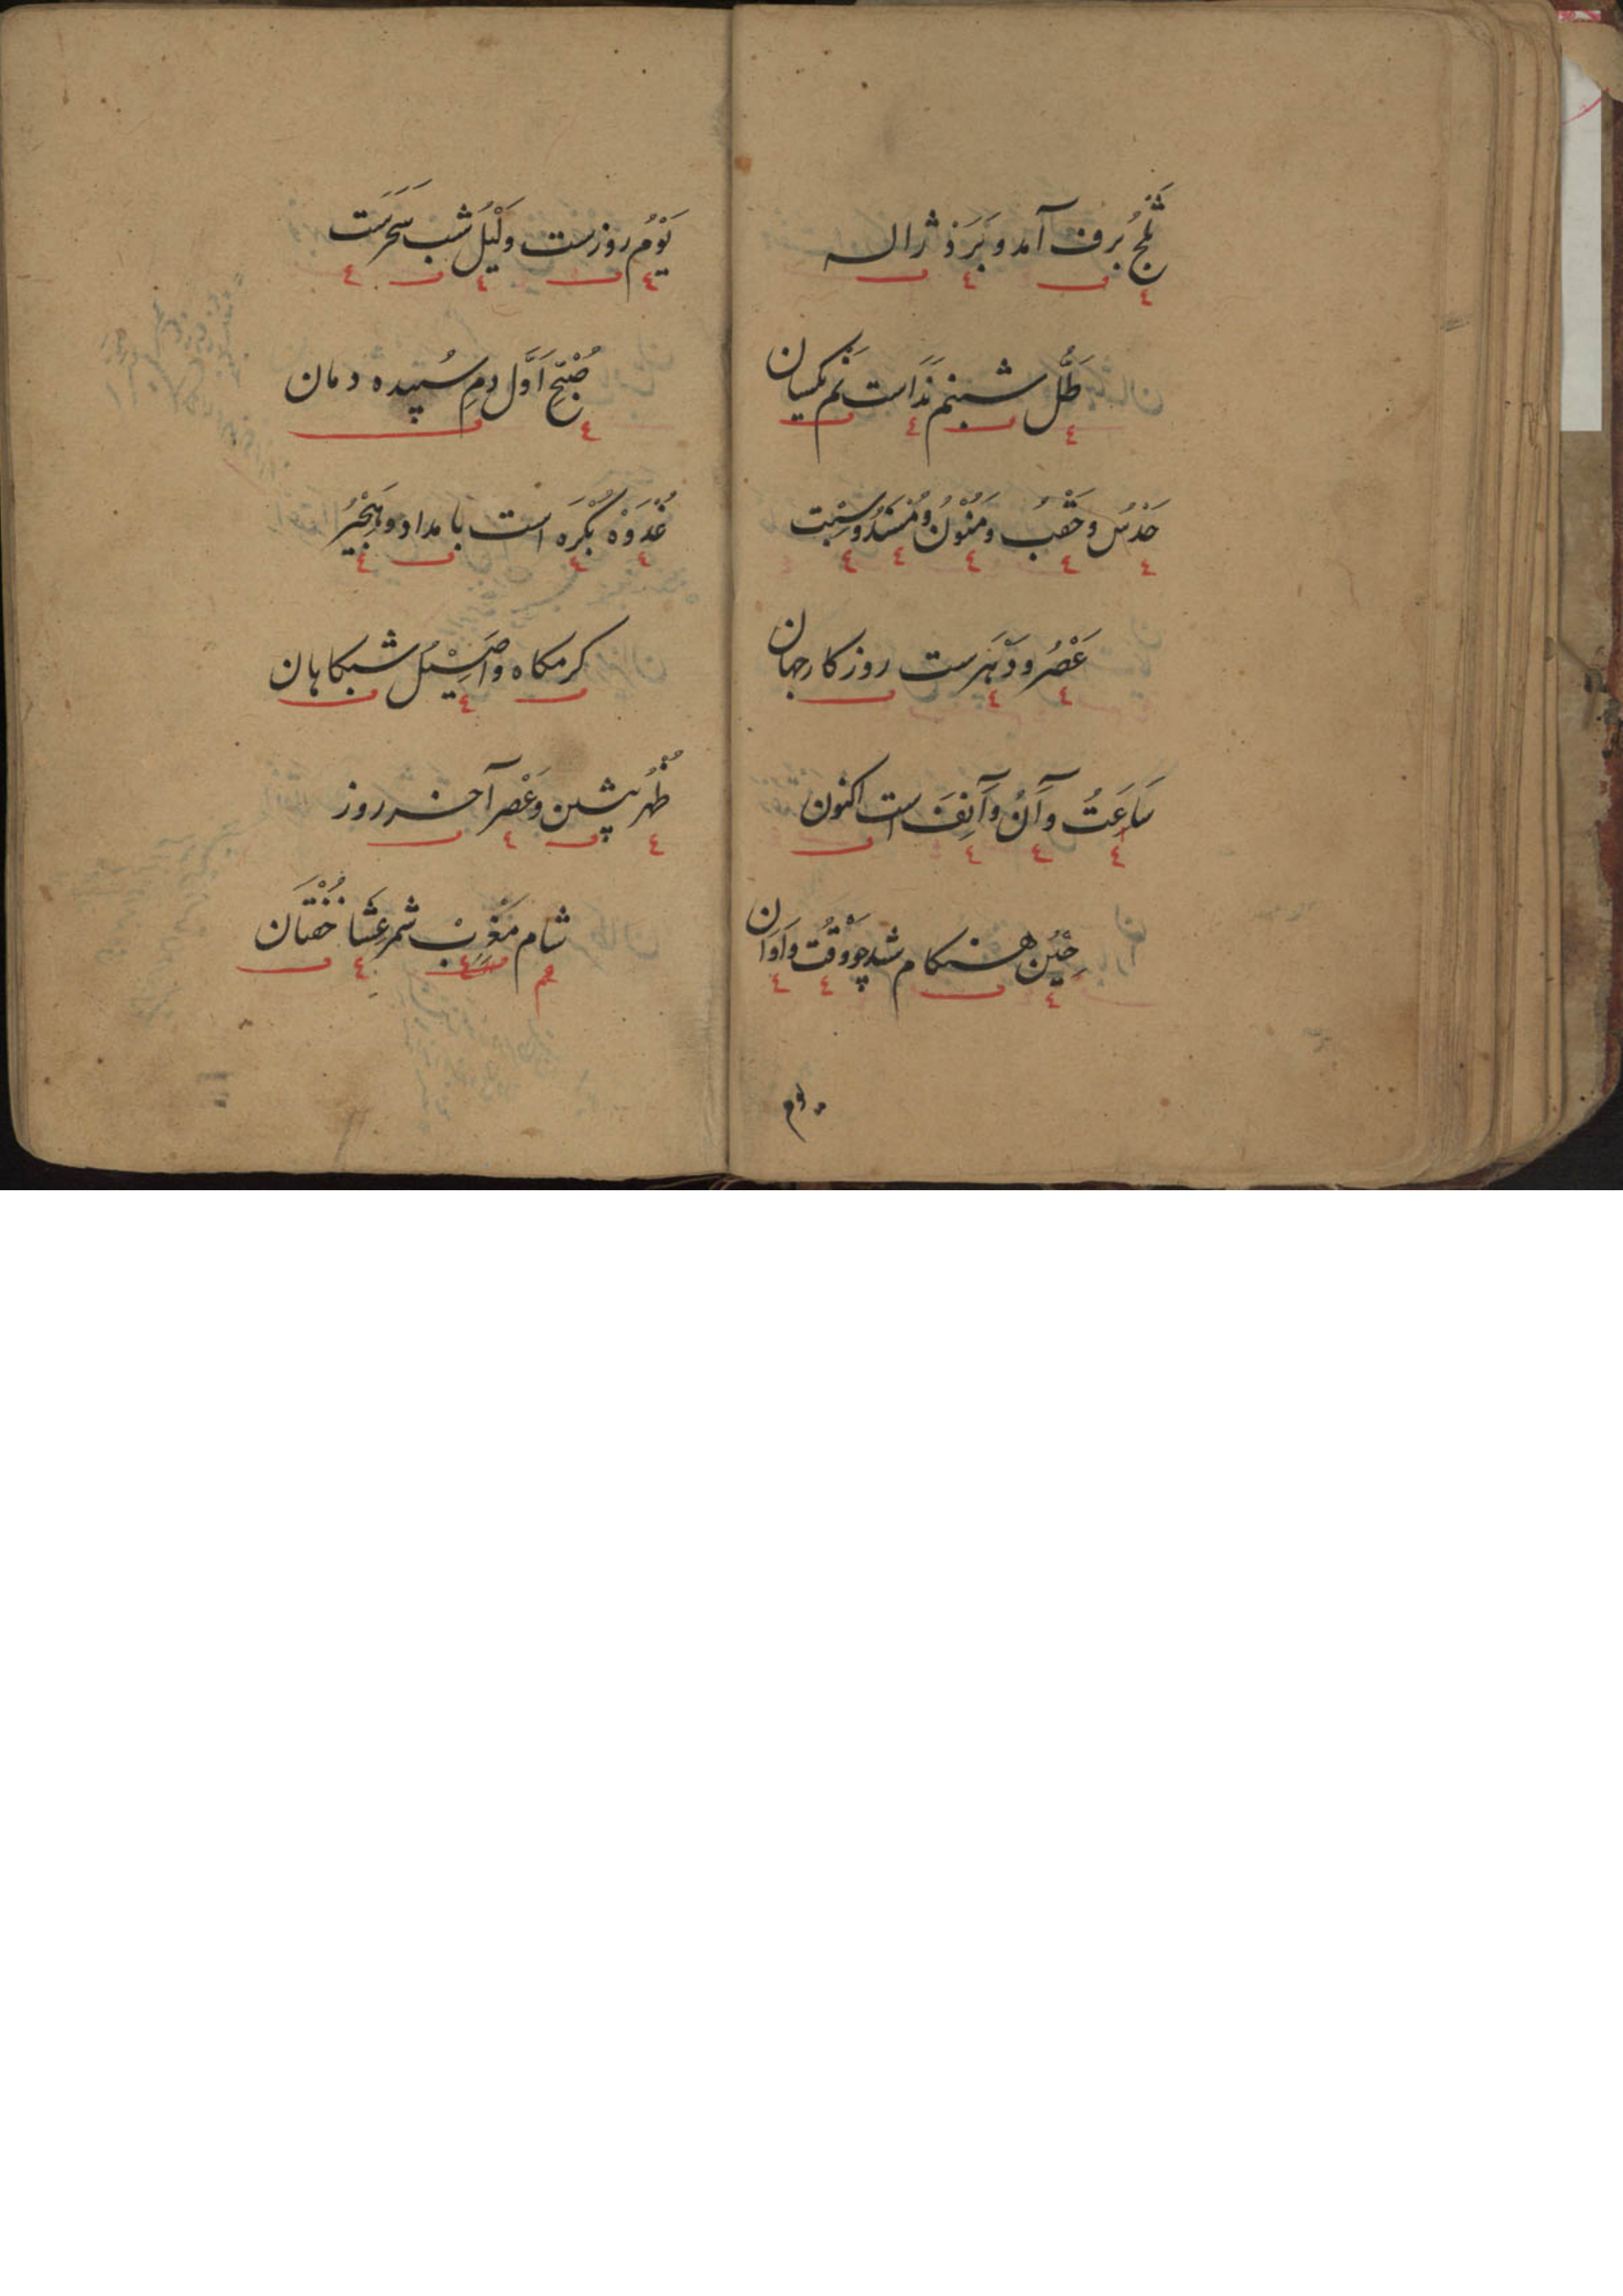 ثَلْجُ بَرف آمد و بَرَدْ ژاله
طَلّ شبنم نَدَاست نَم یکسان
حَدْسُ وحُقْبُ ومَنُوْنُ ومُسْنَدُ وسَبْت
عَصْرُ ودَهْرَست روزکار جهان
سَاعَتُ وآنُ وآنِفَ است اکنون
حِیْن هنکام شد چو وَقْتُ واَوَان
یوم
یَوْمُ روزست ولَیْلُ شب سَحَرَست
صُبْحِ اَوَّل دمِ سُپیده دمان
غُدْوَهْ بُکْرَه است بامداد وهَجِیْرُ
کرمکاه واَصِیْلُ شبکاهان
ظُهْر پیشین وعَصْر آخر روز
شام مَغْرِبْ شمر عِشَا خُفْتَان